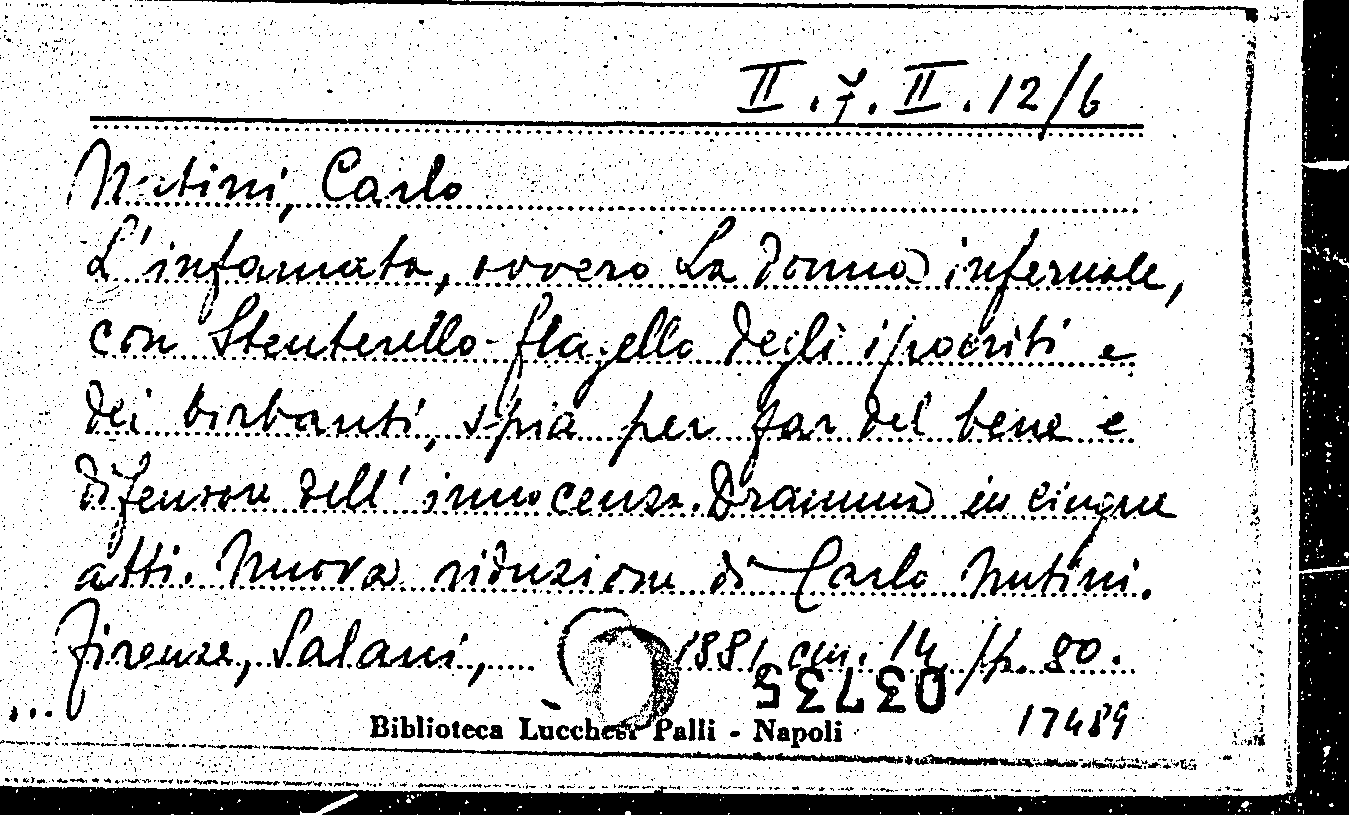 II.7.II.12/6
Nutini, Carlo
L'infamata, ovvero La donna infernale,
con Stenterello flagello degli ipocriti e
dei birbanti, spia per far del bene e
difensore dell'innocenza. Dramma in cinque
atti. Nuova riduzione di Carlo Nutini.
Firenze, Salani, 1881, cm. 14 pp. 80.
03735
17489
Biblioteca Lucchesi Palli - Napoli